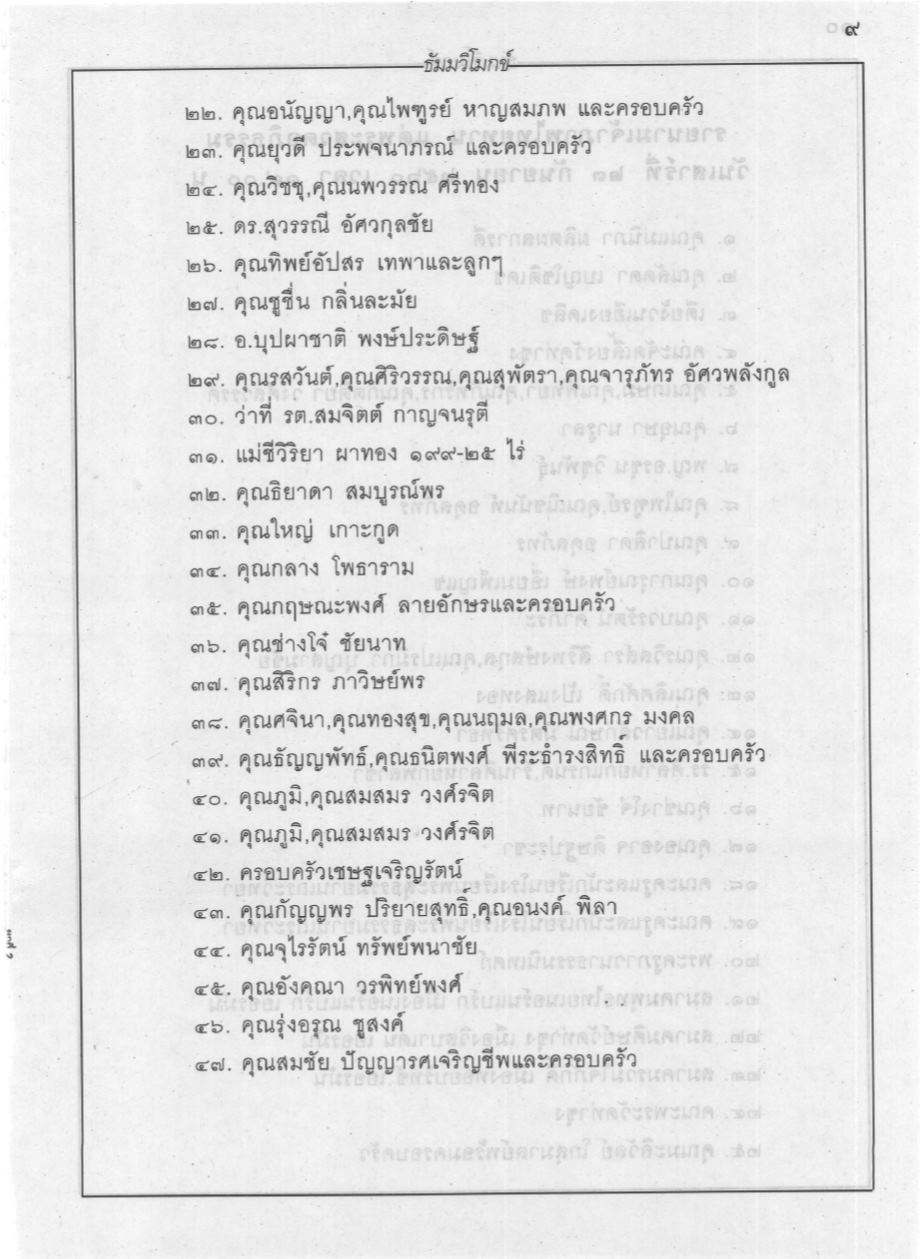 ๙
ธัมมวิโมกข์
๒๒. คุณอนัญญา,คุณไพฑูรย์ หาญสมภพ และครอบครัว
๒๓. คุณยุวดี ประพจนาภรณ์ และครอบครัว
๒๔. คุณวิชชุ,คุณนพวรรณ ศรีทอง
๒๕. ดร.สุวรรณี อัศวกุลชัย
๒๖. คุณทิพย์อัปสร เทพาและลูกๆ
๒๗. คุณชูชื่น กลิ่นละมัย
๒๘. อ.บุปผาชาติ พงษ์ประดิษฐ์
๒๙. คุณรสวันต์,คุณศิริวรรณ,คุณสุพัตรา,คุณจารุภัทร อัศวพลังกูล
๓๐. ว่าที่ รต.สมจิตต์ กาญจนรุตี
๓๑. แม่ชีวิริยา ผาทอง ๑๙๙-๒๕ ไร่
๓๒. คุณธิยาดา สมบูรณ์พร
๓๓. คุณใหญ่ เกาะกูด
๓๔. คุณกลาง โพธาราม
๓๕. คุณกฤษณะพงศ์ ลายอักษรและครอบครัว
๓๖. คุณช่างโจ๋ ชัยนาท
๓๗. คุณสิริกร ภาวิษย์พร
๓๘. คุณศจินา,คุณทองสุข,คุณนฤมล,คุณพงศกร มงคล
๓๙. คุณธัญญพัทธ์,คุณธนิตพงศ์ พีระธำรงสิทธิ์ และครอบครัว
๔๐. คุณภูมิ,คุณสมสมร วงศ์รจิต
๔๑. คุณภูมิ,คุณสมสมร วงศ์รจิต
๔๒. ครอบครัวเชษฐเจริญรัตน์
๔๓. คุณกัญญพร ปริยายสุทธิ์,คุณอนงค์ พิลา
๔๔. คุณจุไรรัตน์ ทรัพย์พนาชัย
๔๕. คุณอังคณา วรพิทย์พงศ์
๔๖. คุณรุ่งอรุณ ชูสงค์
๔๗. คุณสมชัย ปัญญารศเจริญชีพและครอบครัว